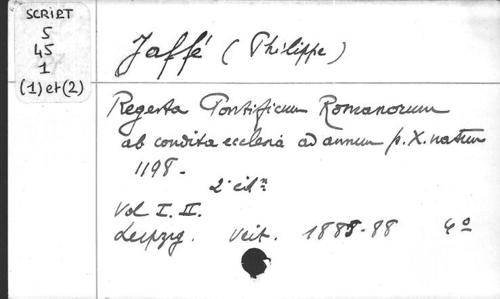 SCRIPT
5
45
1
(1) et (2)
Jaffé (Philippe)
Regesta Pontificum Romanorum
ab condita ecclesia ad annum p. X. natum
1198.
2e édn
Vol I. II.
Leipzig. Veit. 1885-88 4o